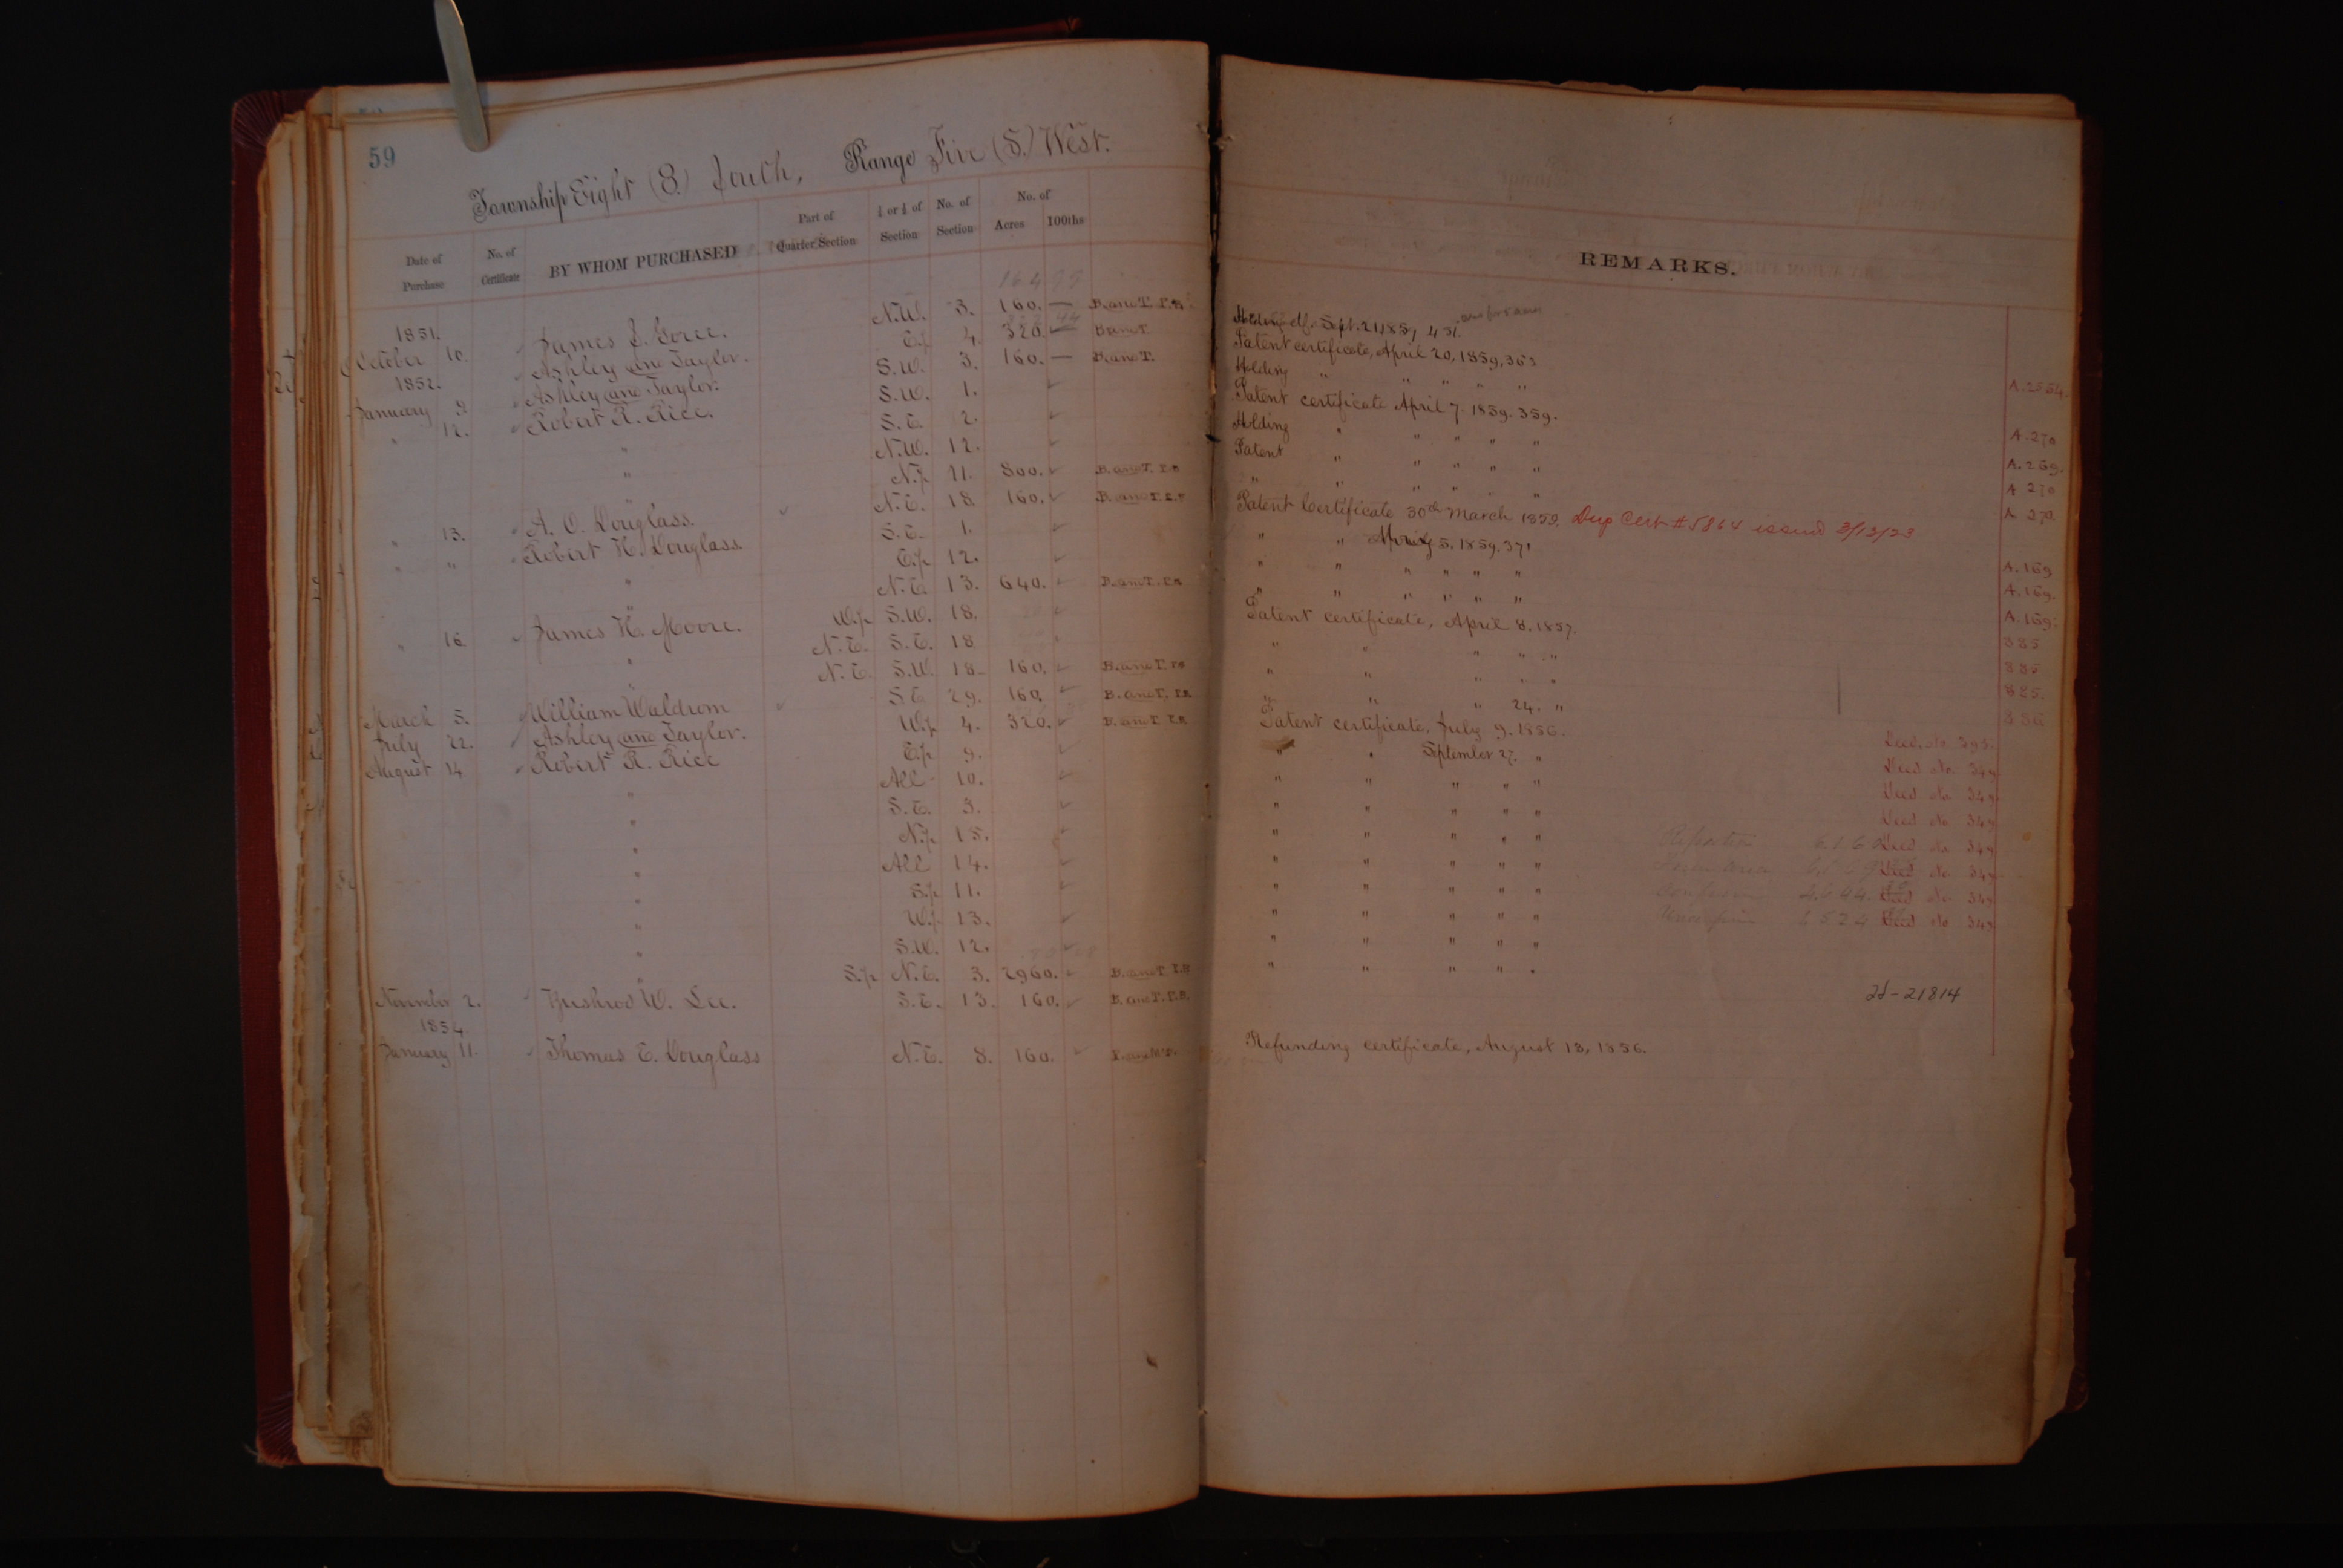 59
Township Eight (8.) South, Range Five (5.) West.
Date of Purchase
No. of Certificate
BY WHOM PURCHASED
Part of Quarter Section
½ or ¼ of Section
No. of Section
No. of
Acres 100ths
1851.
October 10. James L. Goree. N.W. 3. 160. — B. and T. T.B.
1852.
Ashley and Taylor. E.½ 4. 320. B. and T.
January 9. Ashley and Taylor. S.W. 3. 160. — B. and T.
" 12. Robert R. Rice. S.W. 1.
" S.E. 2.
" N.W. 12.
" N.½ 11. 800. B. and T. T.B
" 13. A. O. Douglass. N.E. 18 160. B. and T. T.B
" " Robert H. Douglass. S.E. 1.
" E.½ 12.
" N.E. 13. 640. B. and T. T.B.
" 16 James H. Moore. W.½ S.W. 18.
" N.E. S.E. 18
" N.E. S.W. 18 160. B. and T. T.B
March 5. William Waldrom S.E. 29. 160. B. and T. T.B.
July 22. Ashley and Taylor. W.½ 4. 320. B. and T. T.B.
August 14 Robert R. Rice E.½ 9.
" All 10.
" S.E. 3.
" N.½ 15.
" All 14.
" S.½ 11.
" W.½ 13.
" S.W. 12.
" S.½ N.E. 3. 2960. B. and T. T.B
November 2. Bushrod W. Lee. S.E. 13. 160. B. and T. T.B.
1854.
January 11. Thomas E. Douglass N.E. 8. 160.
REMARKS.
Sept. 21, 1859, 451.
Patent certificate, April 20, 1859, 363
Holding " " " " "
Patent certificate April 7. 1859. 359. A. 270
Holding " " " " " A. 269.
Patent " " " " " A 270
" " " " " " A 270.
Patent Certificate 30th March 1859. Dup Cert # 5864 issued 3/13/23
" " April 5, 1859, 371 A. 169
" " " " " " A. 169.
" " " " " " A. 169.
Patent certificate, April 8, 1857. 885
" " " " " 885
" " " " " 885.
" " " 24. " 886
Patent certificate, July 9. 1856. Deed. No. 393.
" " September 27. " Deed No. 349
" " " " " Deed No 349
" " " " " Deed No 349
" " " " " Deed No 349
" " " " " Deed No 349
" " " " " Deed No 349
" " " " " Deed No 349
" " " " "
" " " " "
21814
Refunding certificate, August 13, 1856.